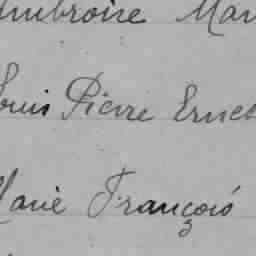 Ambroise Mar
Louis Pierre Ernes
Marie François